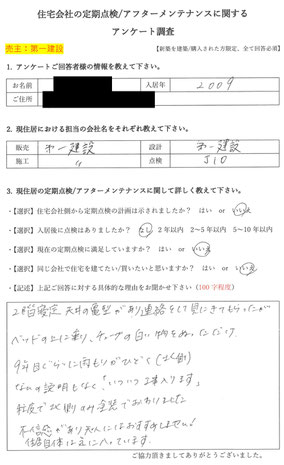 住宅会社の定期点検/アフターメンテナンスに関する
アンケート調査
売主：第一建設
【新築を建築/購入された方限定、全て回答必須】
1. アンケートご回答者様の情報を教えて下さい。
お名前 入居年 2009
ご住所
2. 現住居における担当の会社名をそれぞれ教えて下さい。
販売 第一建設 設計 第一建設
施工 〃 点検 JIO
3. 現住居の定期点検/アフターメンテナンスに関して詳しく教えて下さい。
・【選択】住宅会社側から定期点検の計画は示されましたか？ はい or いいえ
・【選択】入居後に点検はありましたか？ なし 2年以内 2～5年以内 5～10年以内
・【選択】現在の定期点検に満足していますか？ はい or いいえ
・【選択】同じ会社で住宅を建てたい/買いたいと思いますか？ はい or いいえ
・【記述】上記ご回答に対する具体的な理由をお聞かせ下さい（100字程度）
2階寝室 天井の亀裂があり連絡をして見にきてもらったが
ベッドの上に乗り、チューブの白い物をぬっただけ。
9年目ぐらいに雨もりがひどく
なんの説明もなく「いついつ工事入ります」
不信感があり友人にはおすすめしません！
住宅自体は気に入っています。
ご協力頂きましてありがとうございました。